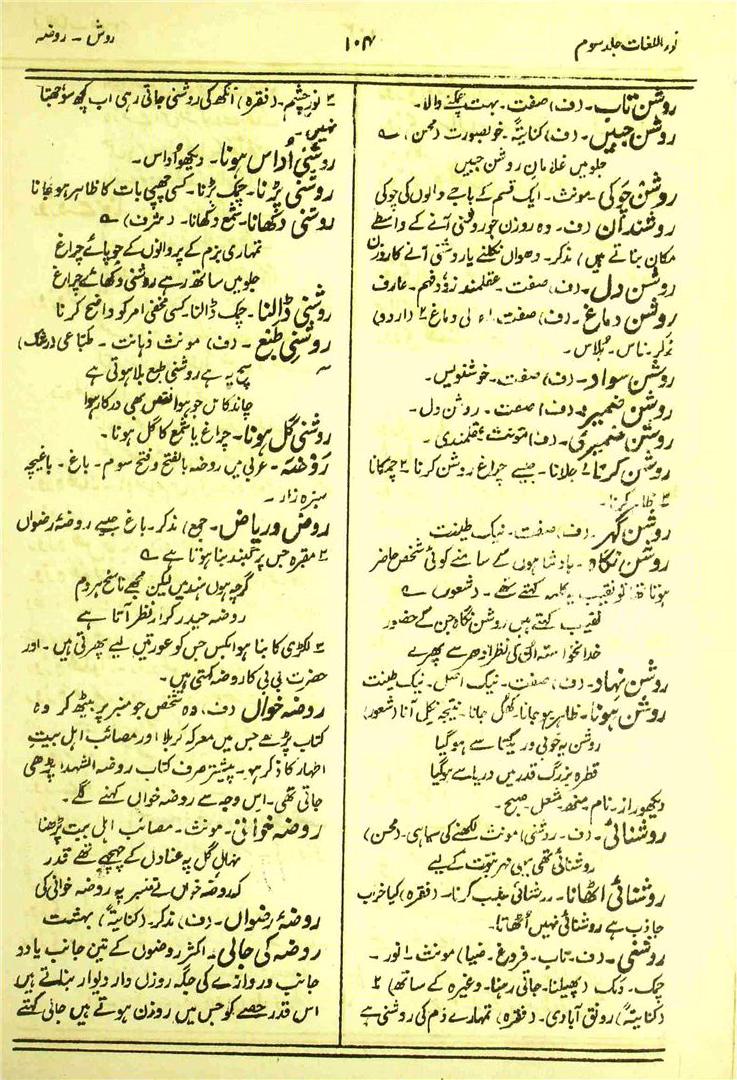 نور اللغات جلد سوم
۱۰۴
روش - روضہ
روشن تاب۔ (ف) صفت۔ بہت چمکنے والا۔
روشن جبیں۔ (ف) کنایۃً۔ خوبصورت (محسن) ؎
جلو میں غلامان روشن جبیں
روشن چوکی۔ مونث۔ ایک قسم کے باجے والوں کی چوکی
روشندان (ف۔ وہ روزن جو روشنی آنے کے واسطے
مکان بناتے ہیں) مذکر۔ دھواں نکلنے یا روشنی آنے کا روزن
روشن دل۔ (ف) صفت۔ عقلمند زود فہم۔ عارف
روشن دماغ۔ (ف) صفت ۱؎ لی دماغ ۲؎ (اردو)
مذکر ناس۔ ہلاس۔
روشن سواد۔ (ف) صفت۔ خوشنویس۔
روشن ضمیر۔ (ف) صفت۔ روشن دل۔
روشن ضمیری۔ (ف) مونث عقلمندی۔
روشن کرنا ۱؎ جلانا۔ جیسے چراغ روشن کرنا ۲؎ چمکانا
۳؎ ظاہر کرنا۔
روشن گہر۔ (ف) صفت۔ نیک طینت
روشن نگاہ۔ بادشاہوں کے سامنے کوئی شخص حاضر
ہوتا تھا تو نقیب یہ کلمہ کہتے تھے۔ (شعور) ؎
نقیب کہتے ہیں روشن نگاہ جن کے حضور
خدانخواستہ ان کی نظر ادھر سے پھرے
روشن نہاد۔ (ف) صفت۔ نیک اصل۔ نیک طینت
روشن ہونا۔ ظاہر ہو جانا۔ کھل جانا۔ نتیجہ نکل آنا (شعور)
روشن یہ خوبی در یکتا سے ہو گیا
قطرہ بزرگ قدر میں دریا سے ہو گیا
دیکھو راز۔ نام۔ منھ۔ مشعل۔ صبح۔
روشنائی۔ (ف۔ روشنی) مونث لکھنے کی سیاہی۔ (محسن)
روشنائی تھی یہی مہر نبوت کے لیے
روشنائی اٹھانا۔ روشنائی جذب کرنا۔ (فقرہ) کیا خراب
جاذب ہے روشنائی نہیں اٹھاتا۔
روشنی۔ (ف۔ تاب۔ فروغ۔ ضیا) مونث ۱؎ نور۔
چمک۔ دمک (پھیلنا۔ جاتی رہنا۔ وغیرہ کے ساتھ) ۲؎
(کنایۃً) رونق آبادی۔ (فقرہ) تمہارے دم کی روشنی ہے
۳؎ نور چشم۔ (فقرہ) آنکھ کی روشنی جاتی رہی اب کچھ سوجھتا
نہیں۔
روشنی اُداس ہونا۔ دیکھو اُداس۔
روشنی پڑنا۔ چمک پڑنا۔ کسی چھپی بات کا ظاہر ہو جانا
روشنی دکھانا۔ شمع دکھانا۔ (مشرف) ؎
تمہاری بزم کے پروانوں کے جو پائے چراغ
جلو میں ساتھ رہے روشنی دکھائے چراغ
روشنی ڈالنا۔ چمک ڈالنا۔ کسی مخفی امر کو واضح کرنا
روشنیِ طبع۔ (ف) مونث ذہانت۔ طباعی (رشک) ؎
سچ یہ ہے روشنی طبع بلا ہوتی ہے
چاند کامل جو ہوا نقص بھی درکار ہوا
روشنی گل ہونا۔ چراغ یا شمع کا گل ہونا۔
روضہ۔ عربی میں روضہ بالفتح و فتح سوم۔ باغ۔ باغیچہ
سبزہ زار۔
روض و ریاض۔ جمع) مذکر۔ باغ جیسے روضۂ رضواں
۲؎ مقبرہ جس پر گنبد بنا ہوتا ہے ؎
گرچہ ہوں ہند میں لیکن مجھے ناسخ ہر دم
روضہ حیدر کرار نظر آتا ہے
۳؎ لکڑی کا بنا ہوا بکس جس کو عورتیں لیے پھرتی ہیں۔ اور
حضرت بی بی کا روضہ کہتی ہیں۔
روضہ خواں (ف۔ وہ شخص جو منبر پر بیٹھ کر وہ
کتاب پڑھے جس میں معرکہ کربلا اور مصائب اہل بیت
اطہار کا ذکر ہو۔ پیشتر صرف کتاب روضۃ الشہدا پڑھی
جاتی تھی۔ اس وجہ سے روضہ خواں کہنے لگے۔
روضہ خوانی۔ مونث۔ مصائب اہل بیت پڑھنا
نہال گل پہ عنادل کے چہچہے تھے قدر
کہ روضہ خواں نے منبر پہ روضہ خوانی کی
روضۂ رضواں۔ (ف) مذکر۔ (کنایۃً) بہشت
روضہ کی جالی۔ اکثر روضوں کے تین جانب یا دو
جانب دروازے کی جگہ روزن دار دیوار بناتے ہیں
اس قدر حصے کو جس میں روزن ہوتے ہیں جالی کہتے